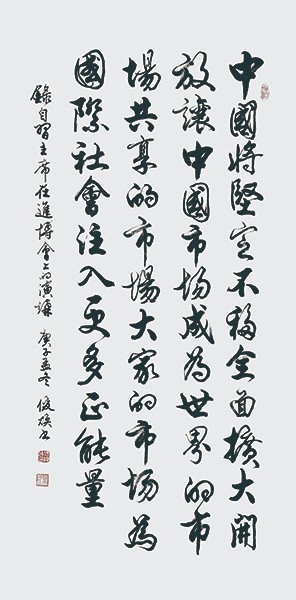 中國將堅定不移全面擴大開
放讓中國市场成為世界的市
場共享的市場大家的市场為
國際社會注入更多正能量
錄自習主席在進博會上的演講 庚子孟冬 俊煥書